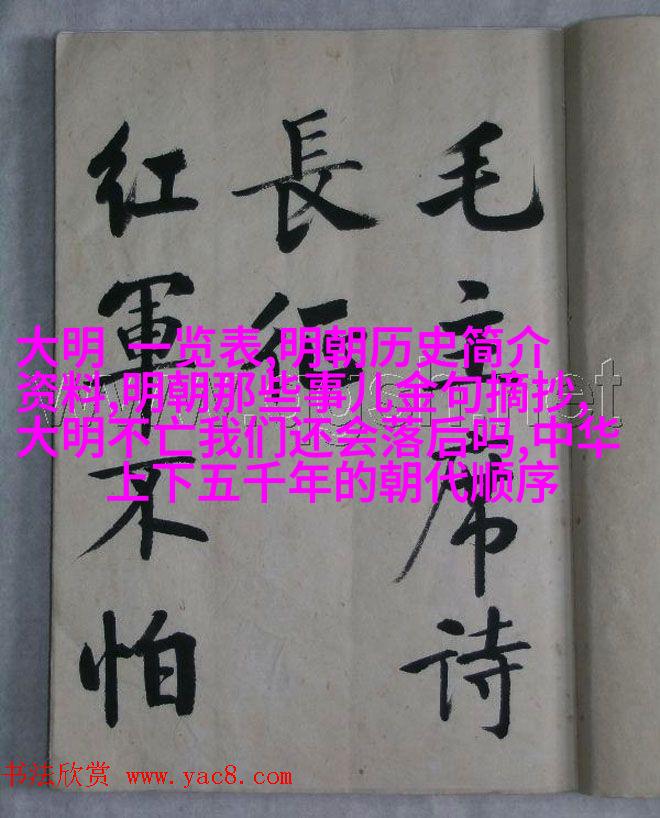 毛主席诗
長征
红軍不怕
大明 一览表,明朝历史简介
资料,明朝那些事儿金句摘抄,
大明不亡我们还会落后吗,中华
上下五千年的朝代顺序
书法欣赏 www.yac8.com